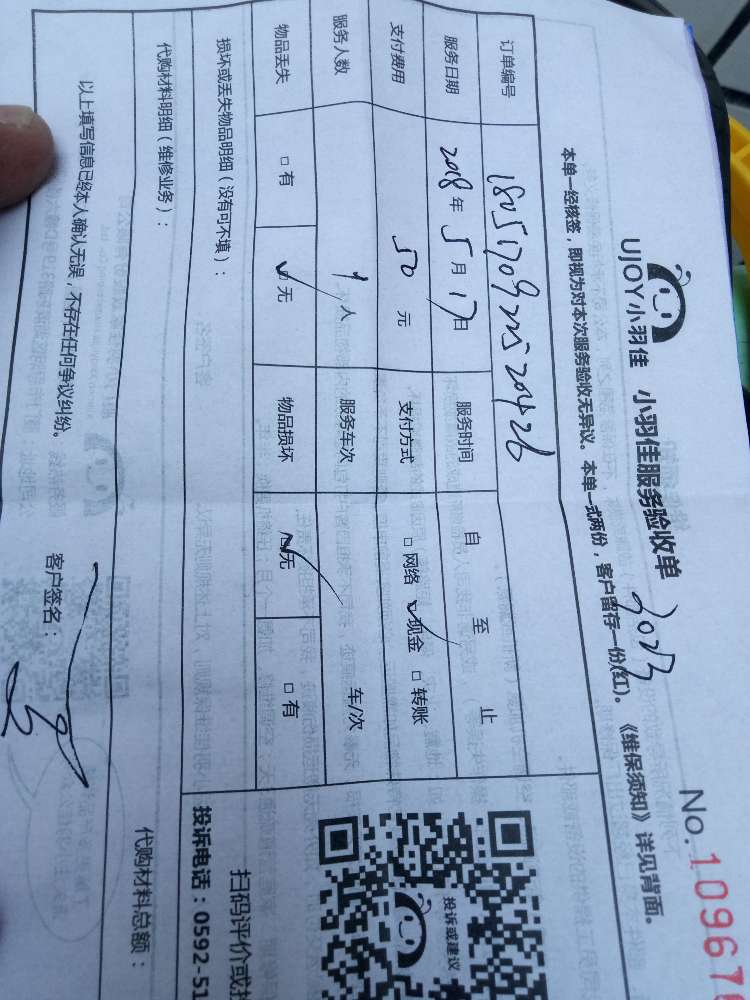 No.10967
UJOY小羽佳 小羽佳服务验收单
3023
本单一经核签，即视为对本次服务验收无异议。本单一式两份，客户留存一份(红)。《维保须知》详见背面。
订单编号 1805170922520426
服务日期 2018年5月17日 服务时间 自 至 止
支付费用 50元 支付方式 □网络 ☑现金 □转账
服务人数 1人 服务车次 车/次
物品丢失 □有 ☑无 物品损坏 ☑无 □有
损坏或丢失物品明细（没有可不填）：
代购材料明细（维修业务）： 代购材料总额：
以上填写信息已经本人确认无误，不存在任何争议纠纷。 客户签名：
投诉或建议
扫码评价或
投诉电话：0592-51